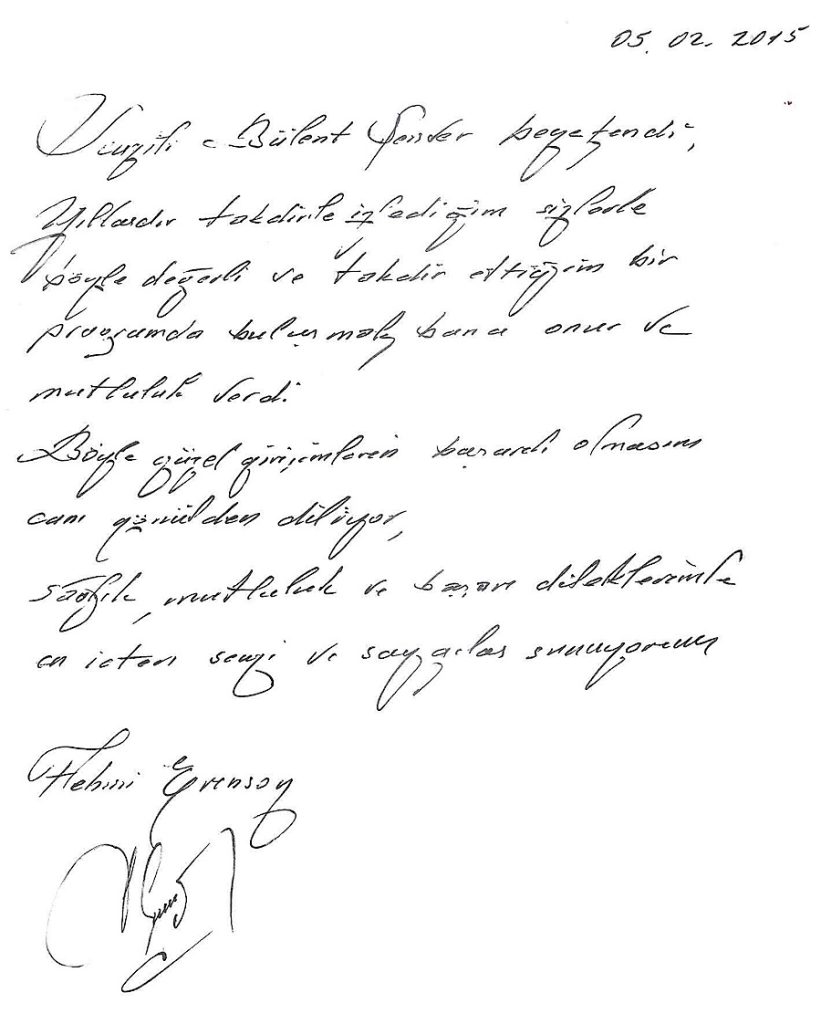 05. 02. 2015
Sevgili Bülent Şenver beyefendi,
Yıllardır takdirle izlediğim sizlerle
böyle değerli ve takdir ettiğim bir
programda buluşmak bana onur ve
mutluluk verdi.
Böyle güzel girişimlerin başarılı olmasını
canı gönülden diliyor,
sağlık, mutluluk ve başarı dileklerimle
en içten sevgi ve saygılar sunuyorum
Fehmi Erensoy